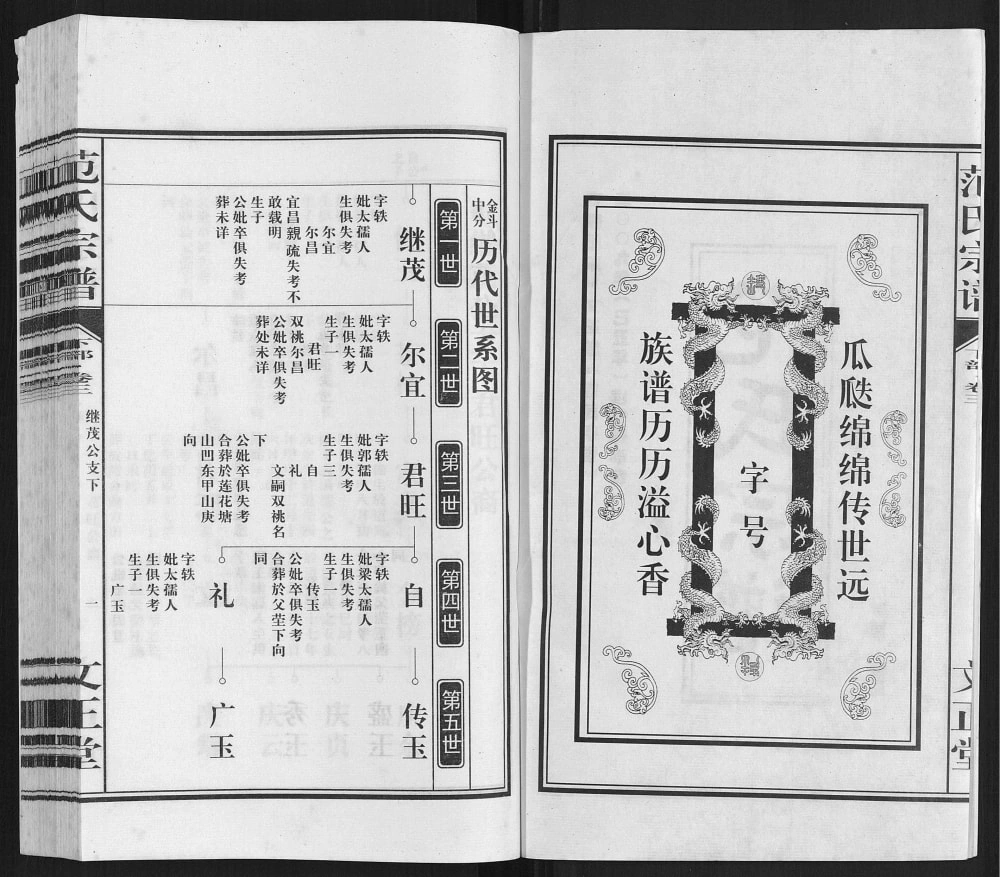 范氏宗谱
下部 卷三
文正堂
瓜瓞绵绵传世远
字号
族谱历历溢心香
金斗
中分
历代世系图
第一世
第二世
第三世
第四世
第五世
继茂
字轶
妣太孺人
生俱失考
尔宜
尔昌
宜昌親疏失考不
敢载明
生子
公妣卒俱失考
葬未详
尔宜
字轶
妣太孺人
生俱失考
生子一
君旺
双祧尔昌
公妣卒俱失考
葬处未详
君旺
字轶
妣郭孺人
生俱失考
生子三
自
礼
文嗣双祧名
下
公妣卒俱失考
合葬於莲花塘
山凹东甲山庚
向
自
字轶
妣梁太孺人
生俱失考
生子一
传玉
公妣卒俱失考
合葬於父茔下向
同
礼
字轶
妣太孺人
生俱失考
生子一
广玉
传玉
广玉
范氏宗谱
下部 卷三
继茂公支下
一
文正堂